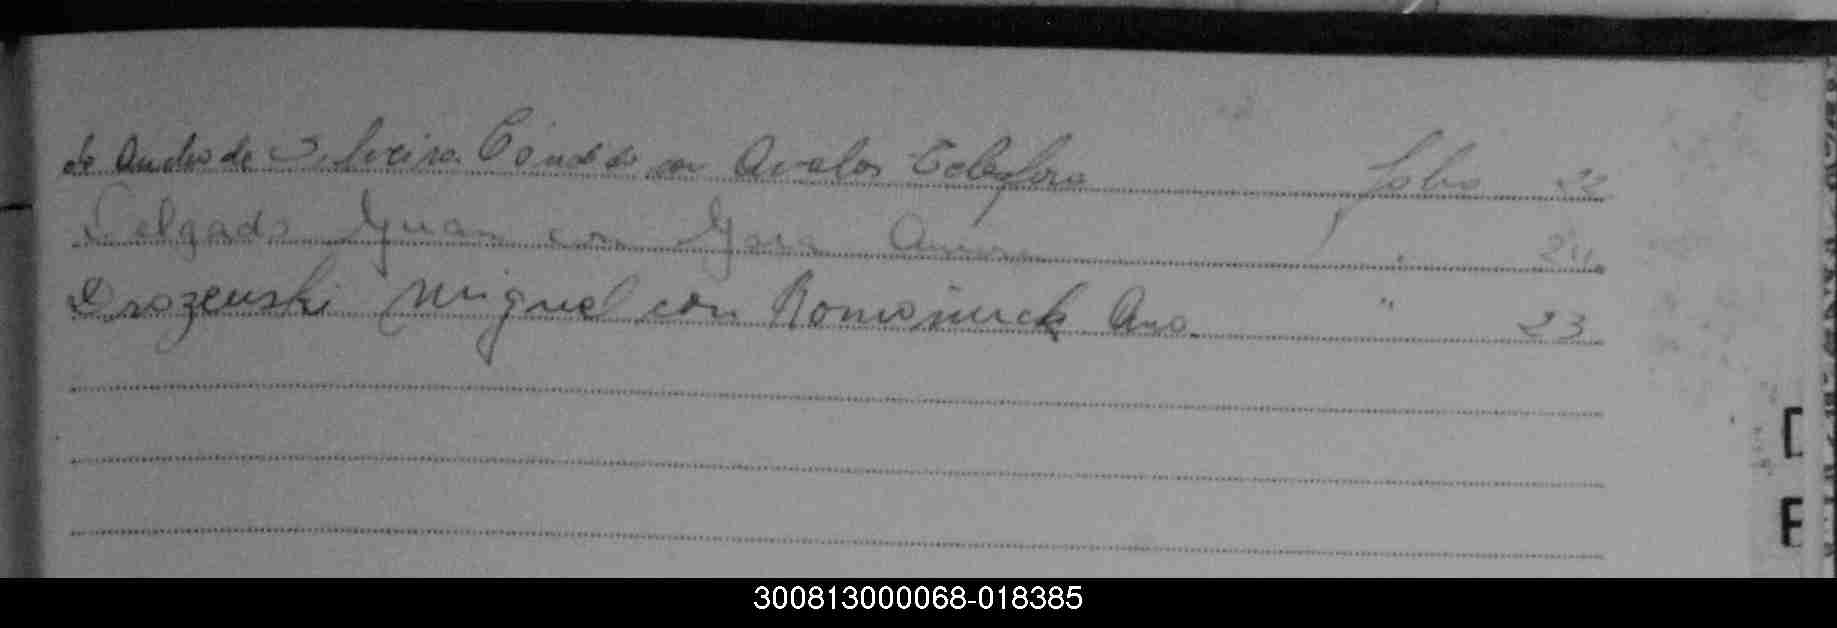 de Silveira Cándido con Avalos Telesfora folio 22
Delgado Juan con " 
Drozeuski Miguel con Romaniuck Ana " 23
D
E
300813000068-018385